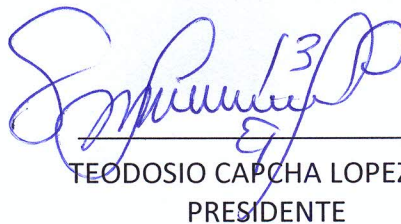 TEODOSIO CAPCHA LOPEZ
PRESIDENTE